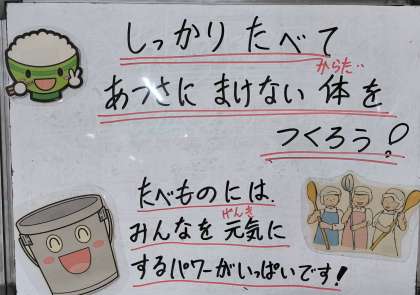 しっかり たべて
からだ
あつさに まけない 体を
つくろう!
たべものには
げんき
みんなを 元気に
するパワーがいっぱいです!